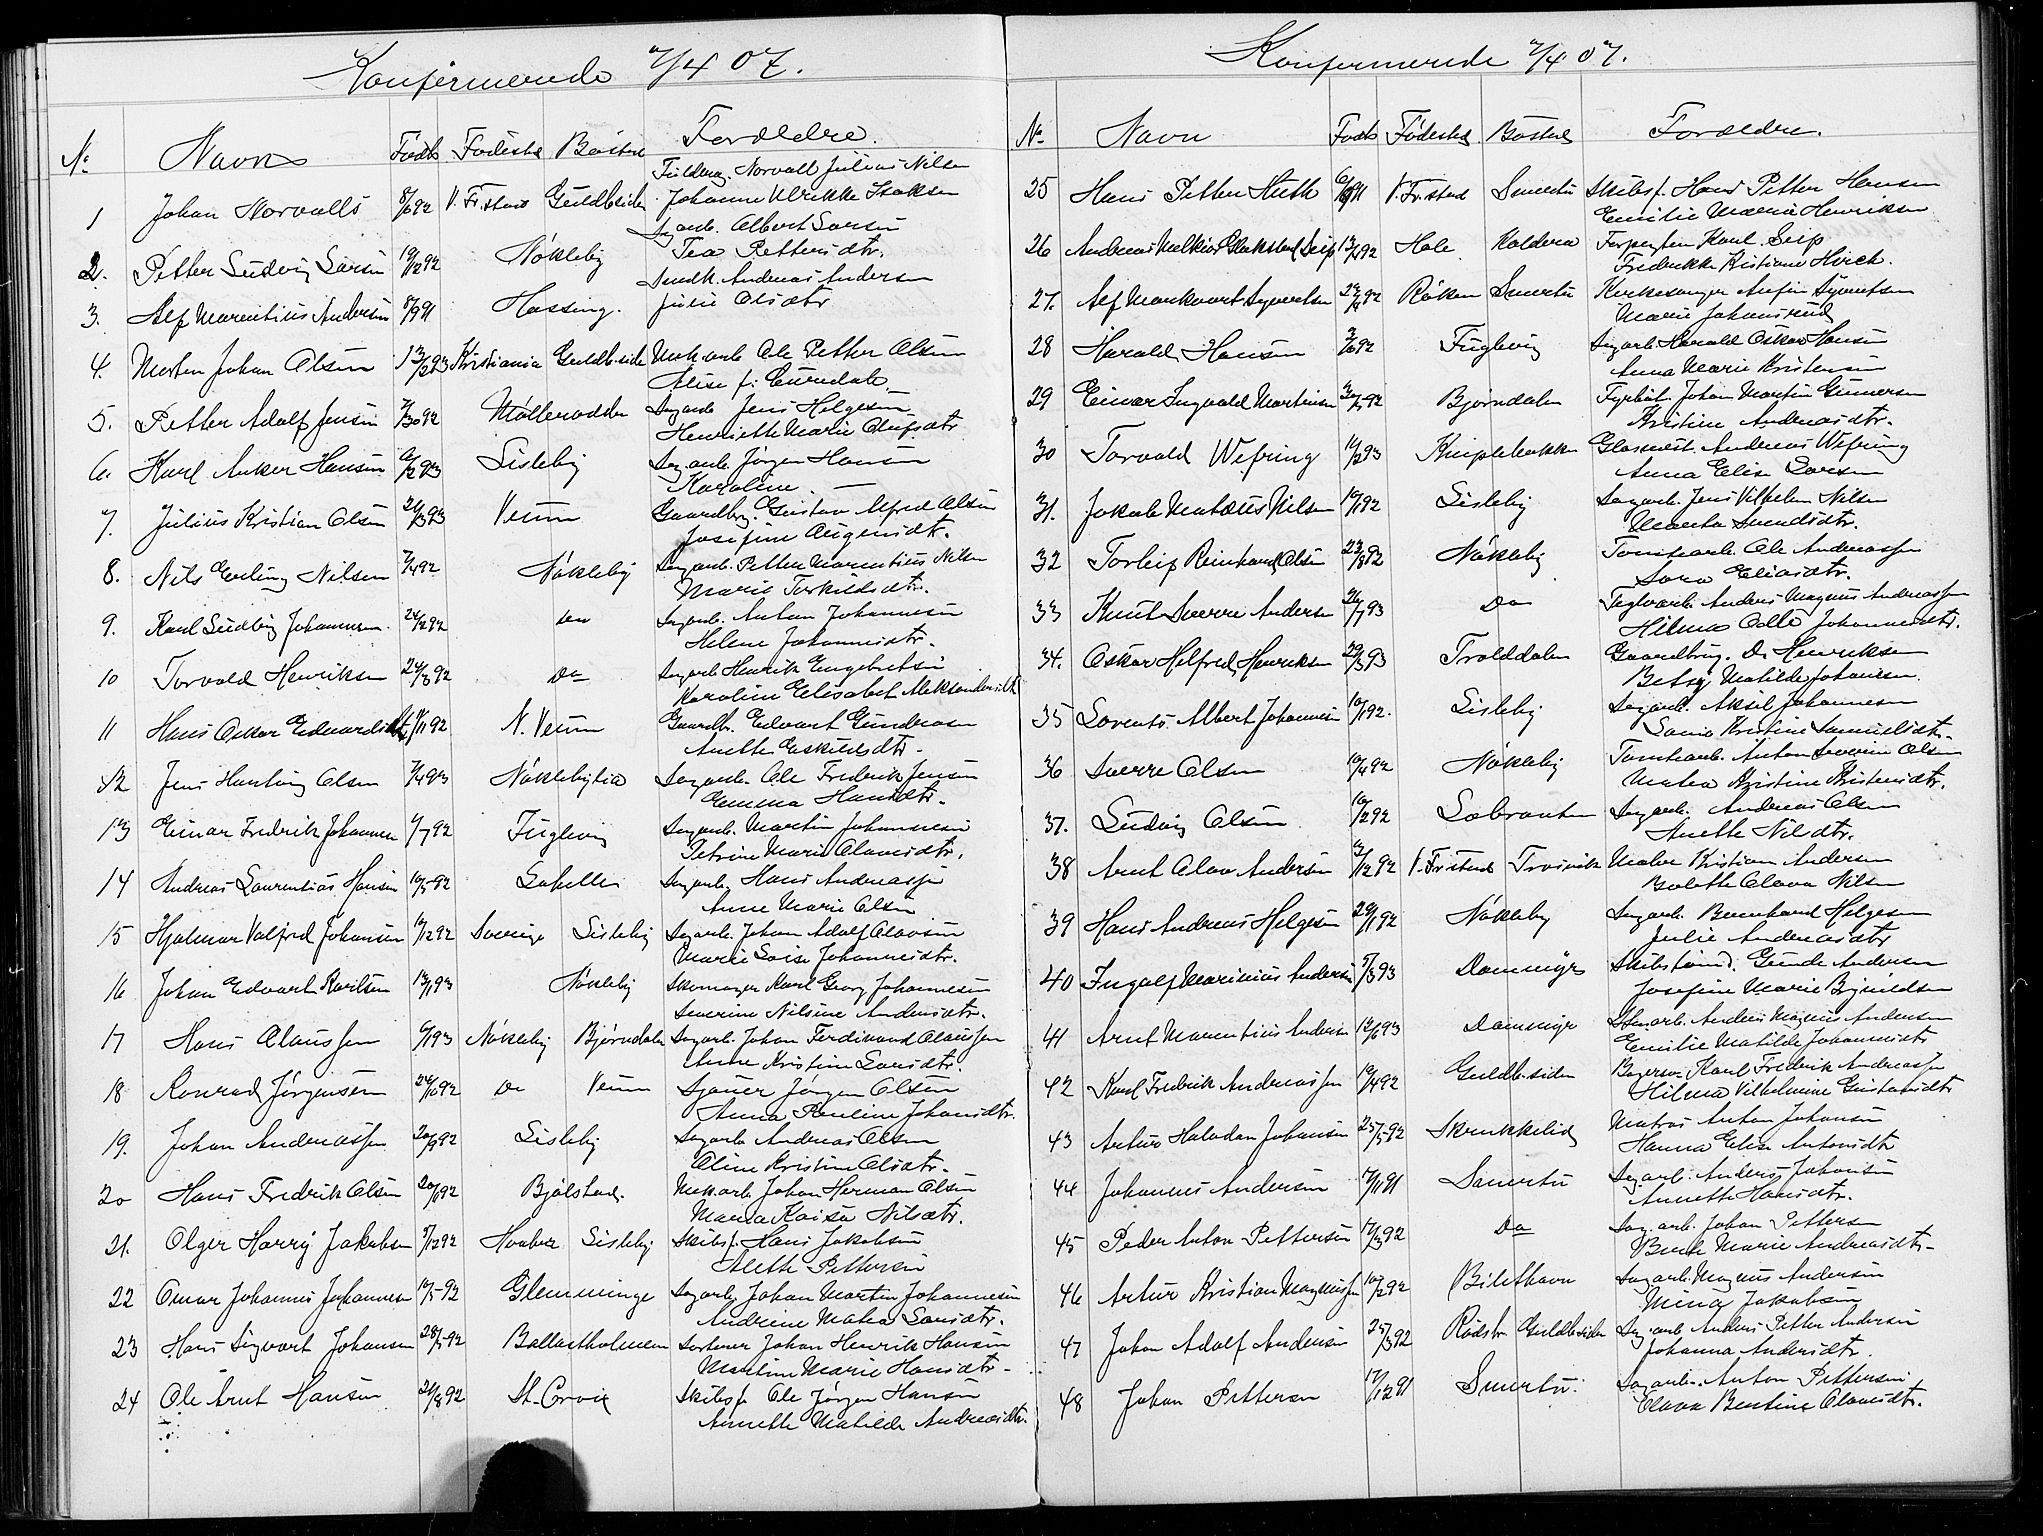 Konfirmerede 7/4 07.
No Navn Født Fødested Bosted Forældre.
1 Johan Norvalls 8/6 92 V. Fr.stad Guldb.siden Fuldm. Norvall Julius Nilsen
Johanne Ulrikke Isaksen
2. Petter Ludvig Larsen 19/12 92 Nøkleby Sagarb. Albert Larsen
Tea Pettersdtr.
3. Alf Marentius Andersen 8/9 91 Hassing. Smedk. Andreas Andersen
Julie Olsdtr
4. Morten Johan Olsen 13/2 93 Kristiania Guldb.side Mek.arb Ole Petter Olsen
Elise f.
5. Petter Adolf Jensen 7/10 92 Møllerodden Sagarb Jens Helgesen
Henriette Marie Olufsdtr
6. Karl Anker Hansen 6/2 93 Lisleby Sagarb. Jørgen Hansen
Karoline —
7. Julius Kristian Olsen 26/3 93 Veum Gaardbr. Gustav Alfred Olsen
Josefine Augensdtr.
8. Nils Erling Nilsen 7/4 92 Nøkleby Sagarb. Petter Marentius Nilsen
Marie Torkildsdtr.
9. Karl Ludvig Johannesen 24/2 92 Do Sagarb. Anton Johannesen
Helene Johannesdtr.
10 Torvald Henriksen 24/3 92 Do Sagarb Henrik Engebretsen
Karoline Elisabet Aleksandersdtr
11 Hans Oskar Edvardsen 1/11 92 N. Veum Gaardbr. Edvart Gundersen
Anette Eskildsdtr.
12 Jens Hartvig Olsen 7/4 93 Nøklebylia Sagarb. Ole Fredrik Jensen
Emma Hansdtr.
13 Einar Fredrik Johannesen 4/7 92 Fuglevig Sagarb. Martin Johannesen
Petrine Marie Olavesdtr.
14 Andreas Laurentius Hansen 10/5 92 Labella Sagarb. Hans Andreassen
Anne Marie Olsen
15 Hjalmar Valfred Johansen 10/12 92 Sverige Lisleby Sagarb. Johan Adolf Olavsen
Marie Loise Johannesdtr.
16 Johan Edvart Karlsen 13/1 93 Nøkleby Skomager Karl Georg Johannesen
Severine Nilsine Andersdtr.
17 Hans Claussen 6/1 93 Nøkleby Bjørndalen Sagarb. Johan Ferdinand Claussen
Anne Kristine Larsdtr.
18 Konrad Jørgensen 24/10 92 Do Veum Sjauer Jørgen Olsen
Anna Pauline Johansdtr.
19. Johan Andreassen 20/9 92 Lisleby Sagarb Andreas Olsen
Oline Kristine Olsdtr.
20 Hans Fredrik Olsen 20/9 92 Bjølstad. Mek.arb Johan Herman Olsen
Maria Kaisa Nilsdtr.
21. Olger Harry Jakobsen 5/12 92 Hvaler Lisleby Skibsf. Hans Jakobsen
Alette Pettersen
22 Omar Johannes Johannesen 10/5 92 Glemminge Sagarb. Johan Martin Johannesen
Andrine Matea Larsdtr.
23 Hans Sigvart Johansen 28/5 92 Ballastholmen Sorterer Johan Henrik Hansen
Martine Marie Hansdtr.
24 Ole Arnt Hansen 20/8 92 St. Croix Skibsf. Ole Jørgen Hansen
Annette Matilde Andreasdtr.
Konfirmerede 7/4 07.
No Navn Født Fødested Bosted Forældre.
25 Hans Petter Huth V. Fr.stad Smertu Skibsf. Hans Petter Hansen
Emilie Maria Henriksen
26 Andreas Melkior Glakstad Seip 13/4 92 Hole Kaldera Karl Seip
Fredrikke Kristiane Hirch.
27. Alf Markvart Syvertsen 92 Røken Smertu Kirkesanger Anfin Syvertsen
Marie Johansrud
28 Harald Hansen 3/6 92 Fuglevig Sagarb. Harald Oskar Hansen
Anna Marie Kristensen
29 Einar Ingvald Martinsen 30/5 92 Bjørndalen Fyrbøt. Johan Martin Gunnersen
Kristine Andreasdtr.
30 Torvald Wefring 14/2 93 Kniplebakken Glasmest. Andreas Wefring
Anna Elise Larsen
31. Jakob Matæus Nilsen 19/1 92 Lisleby Sagarb. Jens Vilhelm Nilsen
Marta Svendsdtr.
32 Torleif Reinhard Olsen 23/8 92 Nøkleby Tomtearb. Ole Andreassen
Lara Eliasdtr.
33 Knut Sverre Andersen 26/7 93 Do Teglværk. Anders Magnus Andreassen
Hilma Odle Johannesdtr.
34. Oskar Helfred Henriksen 29/3 93 Trolddalen Gaardbrug. D. Henriksen
Betsy Matilde Johannesen.
35 Lorents Albert Johannesen 10/1 92. Lisleby Sagarb. Aksel Johannesen
Lovise Kristine Samuelsdtr.
36 Sverre Olsen 10/4 92 Nøkleby Tomtearb. Anton Severin Olsen
Matea Kristine Kristensdtr.
37. Ludvig Olsen 10/2 92 Labraaten Sagarb. Andreas Olsen
Anette Nilsdtr.
38 Arnt Olav Andersen 3/12 92 V. Fr.stad Trosvik Maler Kristian Andersen
Bolette Olava Nilsen
39 Hans Andreas Helgesen 29/1 92 Nøkleby Sagarb. Bernhard Helgesen
Julie Andreasdtr
40 Ingolf Marinius Andersen 5/3 93 Dammyr Skibstømd. Gunde Andersen
Josefine Marie Brynildsen
41 Arnt Marentius Andersen 12/6 93 Dammyr Stenarb. Anders Magnus Andersen
Emilie Matilde Johannesdtr
42 Karl Fredrik Andreassen 19/4 92 Guldb.siden Karl Fredrik Andreassen
Hilma Vilhelmine Gustavsdtr
43 Artur Halvdan Johansen 25/5 92 Skrukkelid Matros Anton Johansen
Hanna Elise Antonsdtr
44 Johannes Andersen 17/11 91 Smertu Sagarb. Anders Johansen
Annette Hansdtr.
45 Peder Anton Pettersen 17/3 92 Do Sagarb. Johan Pettersen
Berte Marie Andreasdtr.
46 Artur Kristian Magnussen 10/2 92 Bilethavn Sagarb. Magnus Andersen
Mina Jakobsen
47 Johan Adolf Andersen 25/3 92 Rødsbr. Guldb.siden Sagarb Anders Petter Andersen
Johanna Andersdtr.
48 Johan Pettersen 17/12 91 Smertu. Sagarb. Anton Pettersen
Olava Bentine Olavesdtr.